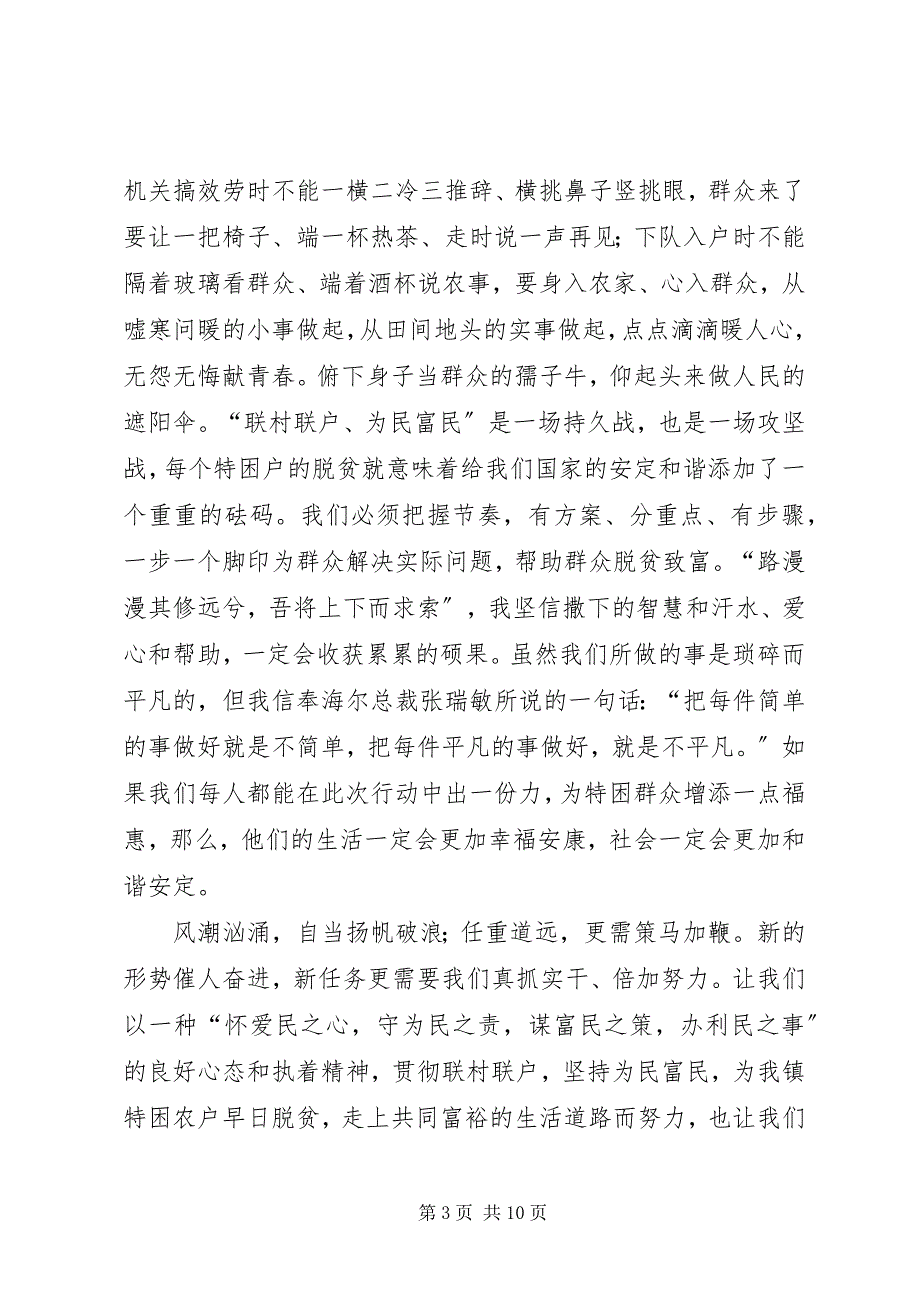 机关搞效劳时不能一横二冷三推辞、横挑鼻子竖挑眼，群众来了
要让一把椅子、端一杯热茶、走时说一声再见；下队入户时不能
隔着玻璃看群众、端着酒杯说农事，要身入农家、心入群众，从
嘘寒问暖的小事做起，从田间地头的实事做起，点点滴滴暖人心，
无怨无悔献青春。俯下身子当群众的孺子牛，仰起头来做人民的
遮阳伞。“联村联户、为民富民〞是一场持久战，也是一场攻坚
战，每个特困户的脱贫就意味着给我们国家的安定和谐添加了一
个重重的砝码。我们必须把握节奏，有方案、分重点、有步骤，
一步一个脚印为群众解决实际问题，帮助群众脱贫致富。“路漫
漫其修远兮，吾将上下而求索〞，我坚信撒下的智慧和汗水、爱
心和帮助，一定会收获累累的硕果。虽然我们所做的事是琐碎而
平凡的，但我信奉海尔总裁张瑞敏所说的一句话：“把每件简单
的事做好就是不简单，把每件平凡的事做好，就是不平凡。〞如
果我们每人都能在此次行动中出一份力，为特困群众增添一点福
惠，那么，他们的生活一定会更加幸福安康，社会一定会更加和
谐安定。
风潮汹涌，自当扬帆破浪；任重道远，更需策马加鞭。新的
形势催人奋进，新任务更需要我们真抓实干、倍加努力。让我们
以一种“怀爱民之心，守为民之责，谋富民之策，办利民之事〞
的良好心态和执着精神，贯彻联村联户，坚持为民富民，为我镇
特困农户早日脱贫，走上共同富裕的生活道路而努力，也让我们
第 3 页 共 10 页